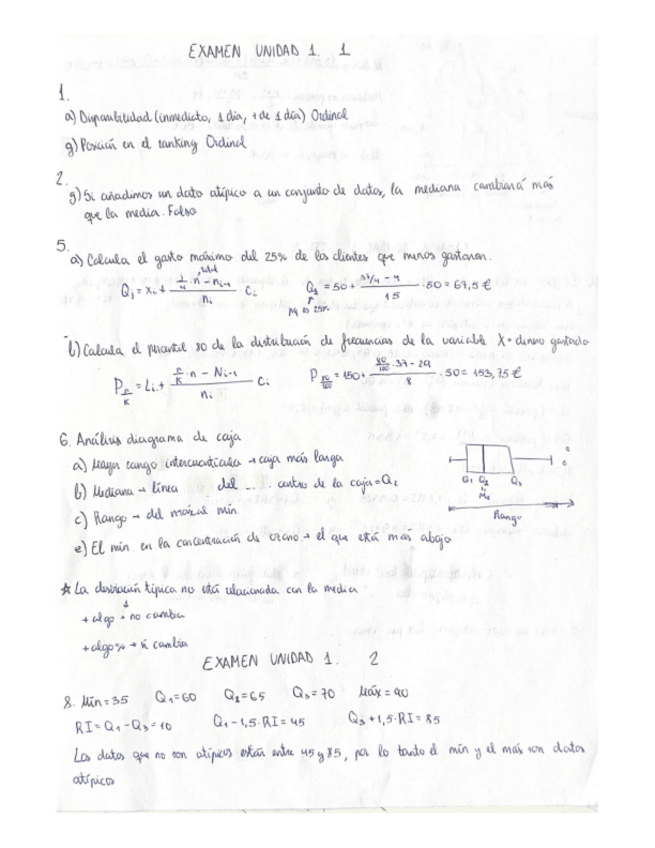 EXAMEN UNIDAD 1. 1
1.
a) Disponibilidad (inmediata, 1 día, + de 1 día) Ordinal
g) Posición en el ranking Ordinal
2.
g) Si añadimos un dato atípico a un conjunto de datos, la mediana cambiará más
que la media. Falso
5.
a) Calcula el gasto máximo del 25% de los clientes que menos gastaron.
Qⱼ = xᵢ + (j/4 · n - nᵢ₋₁)/nᵢ · cᵢ Q₁ = 50 + (37/4 - 4)/15 · 50 = 67,5 €
25%
b) Calcula el percentil 80 de la distribución de frecuencias de la variable X = dinero gastado
P r/k = Lᵢ + (r/k · n - Nᵢ₋₁)/nᵢ · cᵢ P 80/100 = 150 + (80/100 · 37 - 29)/8 · 50 = 153,75 €
6. Análisis diagrama de caja
a) Mayor rango intercuartílico → caja más larga
b) Mediana → línea del .... centro de la caja = Q₂
c) Rango → del máx al mín
e) El mín en la concentración de ozono → el que está más abajo
Q₁ Q₂ Q₃
Me
Rango
☆ La desviación típica no está relacionada con la media
+ algo → no cambia
+ algo % → sí cambia
EXAMEN UNIDAD 1. 2
8. Mín = 35 Q₁ = 60 Q₂ = 65 Q₃ = 70 Máx = 90
RI = Q₁ - Q₃ = 10 Q₁ - 1,5 · RI = 45 Q₃ + 1,5 · RI = 85
Los datos que no son atípicos están entre 45 y 85, por lo tanto el mín y el max son datos
atípicos